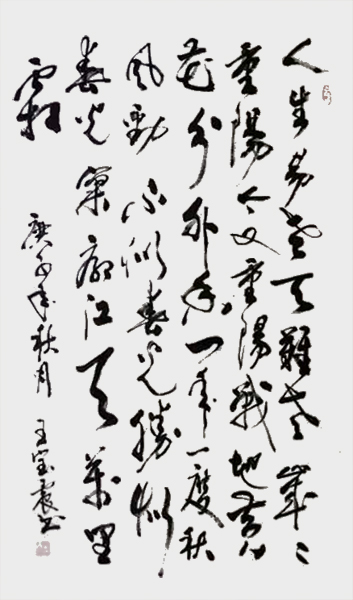 人生易老天難老歲々
重陽今又重陽戰地黄
花分外香一年一度秋
風勁不似春光勝似
春光寥廓江天萬里
霜
庚子年秋月
王宝震书